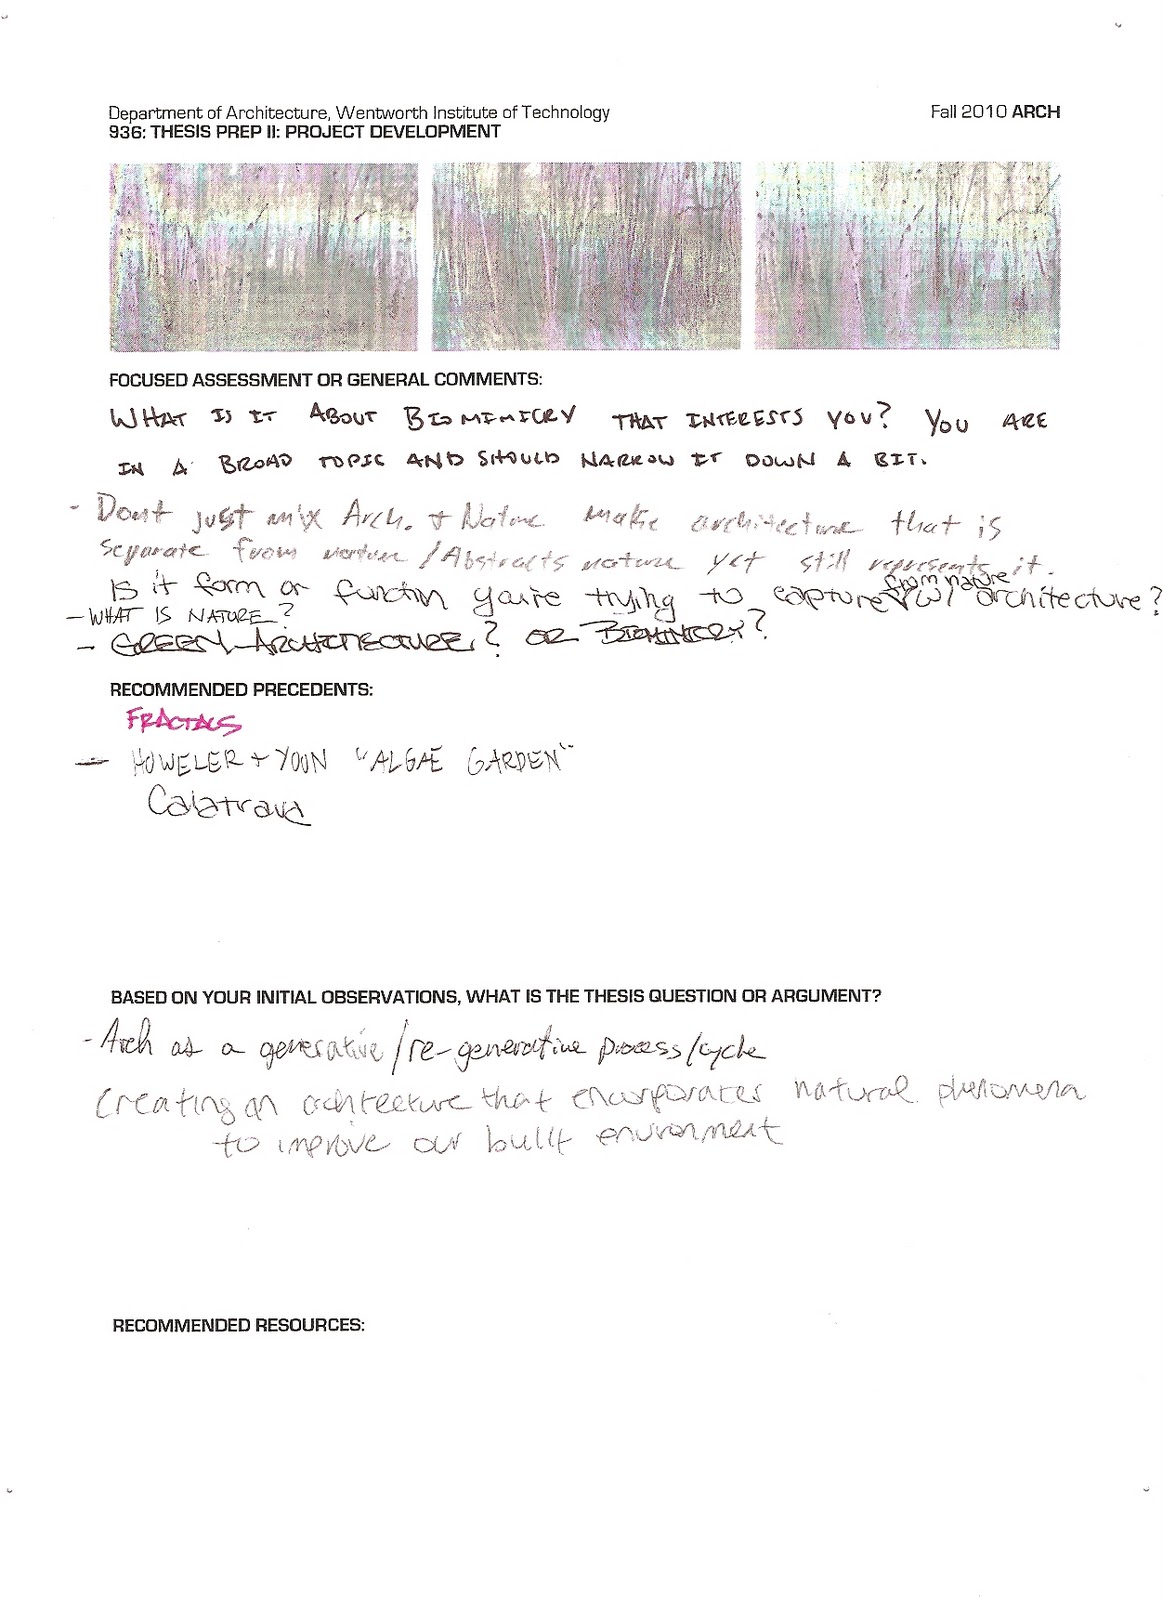 Department of Architecture, Wentworth Institute of Technology
Fall 2010 ARCH
936: THESIS PREP II: PROJECT DEVELOPMENT
FOCUSED ASSESSMENT OR GENERAL COMMENTS:
WHAT IS IT ABOUT BIOMIMICRY THAT INTERESTS YOU? YOU ARE
IN A BROAD TOPIC AND SHOULD NARROW IT DOWN A BIT.
- Dont just mix Arch. + Nature make architecture that is
separate from nature / Abstracts nature yet still represents it.
Is it form or function you're trying to capture from nature w/ architecture?
- WHAT IS NATURE?
- GREEN ARCHITECTURE? OR BIOMIMICRY?
RECOMMENDED PRECEDENTS:
FRACTALS
- HOWELER + YOON "ALGAE GARDEN"
Calatrava
BASED ON YOUR INITIAL OBSERVATIONS, WHAT IS THE THESIS QUESTION OR ARGUMENT?
- Arch as a generative/re-generative process/cycle
Creating an achitecture that encorporates natural phenomena
to improve our built environment
RECOMMENDED RESOURCES: